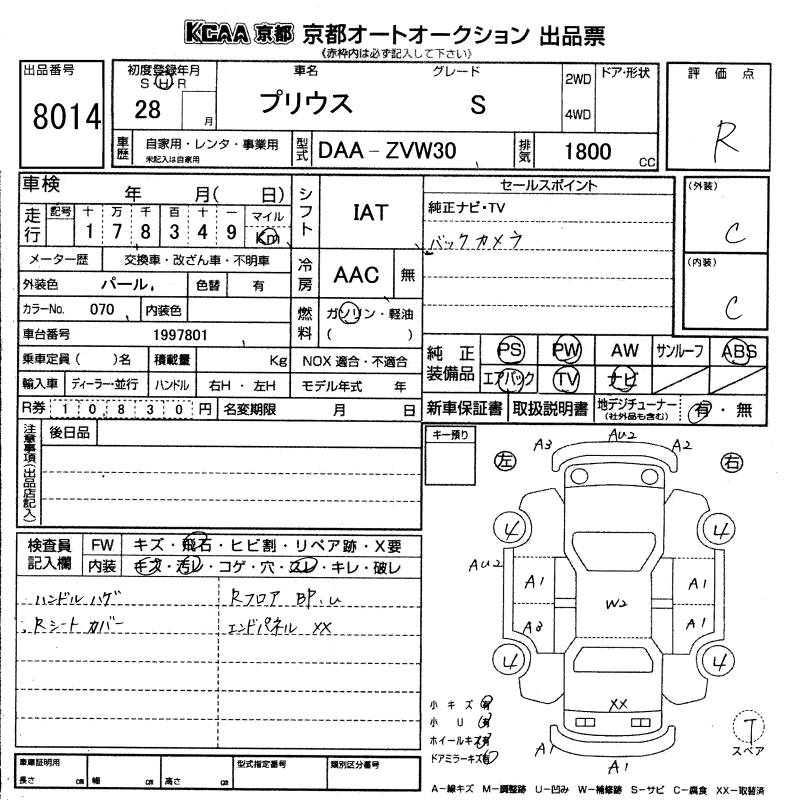 KCAA 京都 京都オートオークション 出品票
(赤枠内は必ず記入して下さい)
出品番号
8014
初度登録年月
S H R
28 月
車名
プリウス
グレード
S
2WD
4WD
ドア・形状
評価点
R
車歴
自家用・レンタ・事業用
未記入は自家用
型式
DAA-ZVW30
排気
1800 CC
車検 年 月( 日)
走行
記号 十 万 千 百 十 一 マイル
1 7 8 3 4 9 Km
メーター歴 交換車・改ざん車・不明車
外装色 パール 色替 有
カラーNo. 070 内装色
車台番号 1997801
乗車定員( )名 積載量 Kg
輸入車 ディーラー・並行 ハンドル 右H・左H
R券 10,830円 名変期限 月 日
シフト IAT
冷房 AAC 無
燃料 ガソリン・軽油
( )
NOX 適合・不適合
モデル年式 年
セールスポイント
純正ナビ・TV
バックカメラ
(外装)
C
(内装)
C
純正装備品
PS PW AW サンルーフ ABS
エアバック TV ナビ
新車保証書 取扱説明書 地デジチューナー
(社外品も含む)
有・無
注意事項(出品店記入)
後日品
キー預り
検査員記入欄
FW キズ・飛石・ヒビ割・リペア跡・X要
内装 キズ・汚レ・コゲ・穴・スレ・キレ・破レ
ハンドルハゲ
Rシートカバー
Rフロア BP.U
エンドパネル XX
左 右
A3 AU2 A2
4 4
AU2
A1 A1
W2
A3 A1
4 4
XX
A1 A1
T
スペア
小キズ 有
小U 有
ホイールキズ 有
ドアミラーキズ 有
車庫証明用
長さ cm 幅 cm 高さ cm
型式指定番号 類別区分番号
A-線キズ M-調整跡 U-凹み W-補修跡 S-サビ C-腐食 XX-取替済